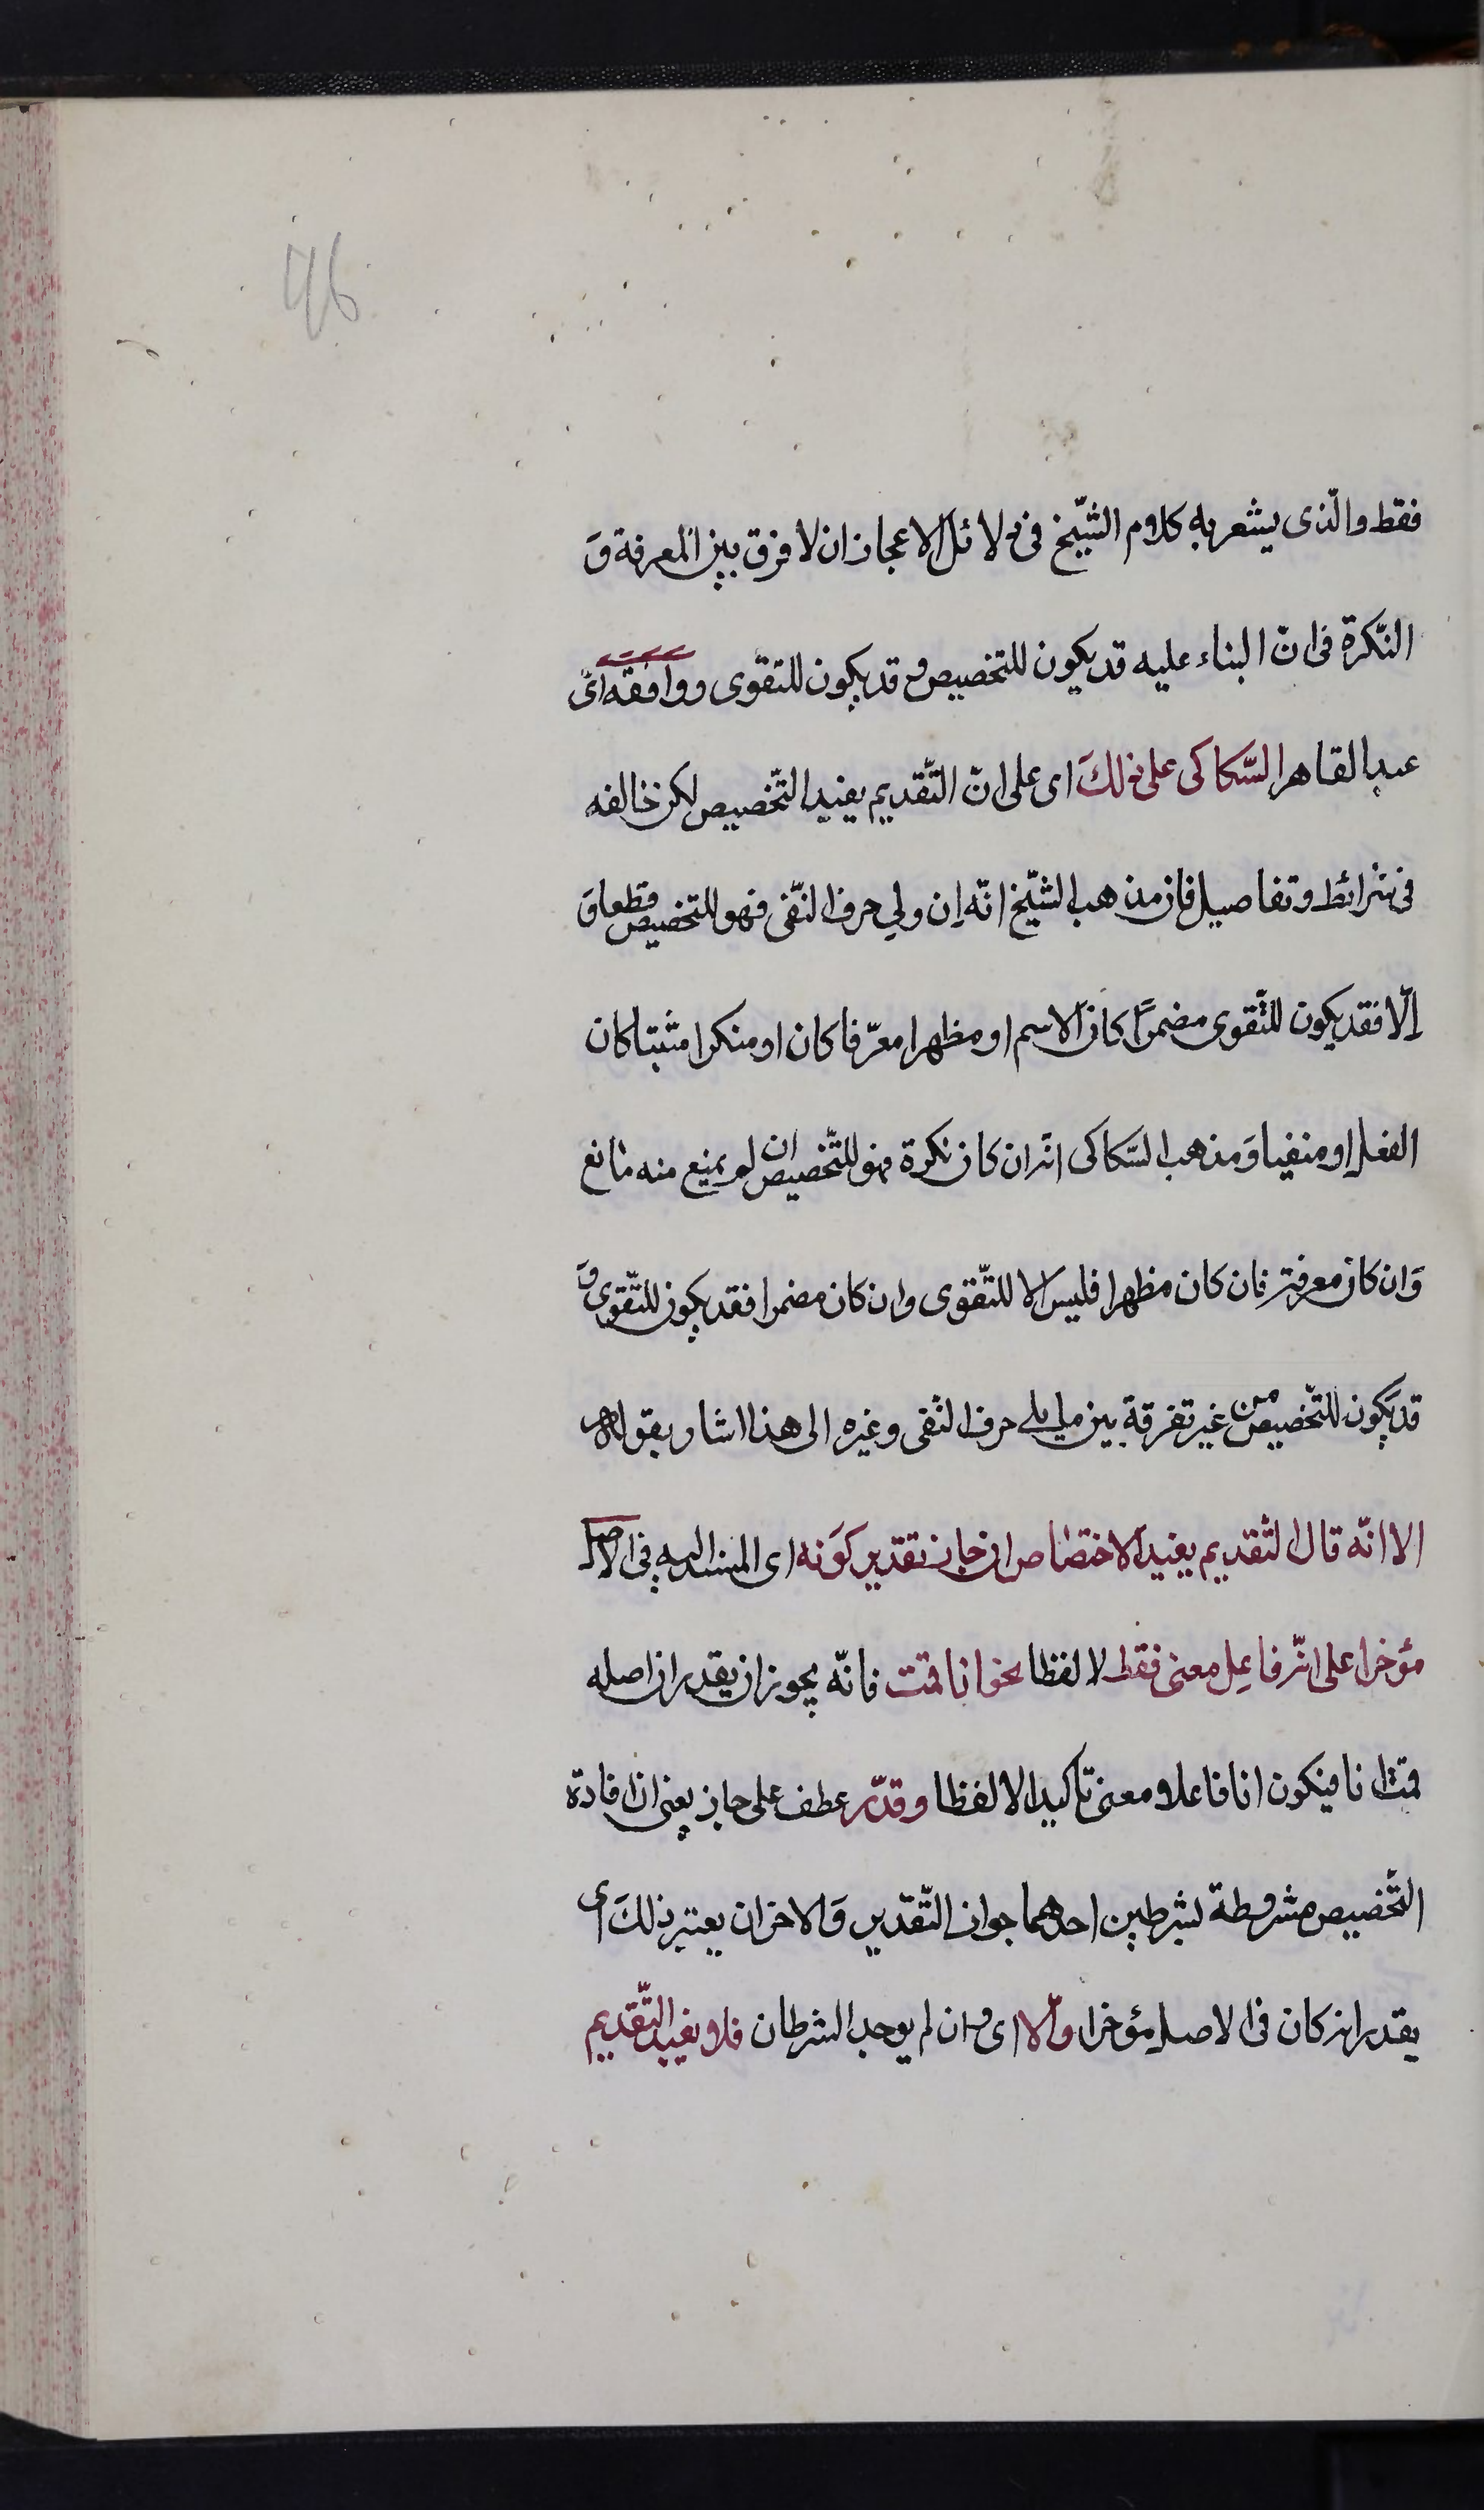 46
فقط والّذى يشعر به كلام الشّيخ فى دلائل الاعجاز ان لا فرق بين المعرفة وَ
النّكرة فى انّ البناء عليه قد يكون للتخصيص وقد يكون للتقوى ووافقه اى
عبد القاهر السّكاكى على ذلكَ اى على انّ التّقديم يفيد التّخصيص لكن خالفه
فى شرائط وتفاصيل فان مذهب الشّيخ انّه اِن ولي حرف النّفى فهو للتخصيص قطعا وَ
اِلّا فقد يكون للتّقوى مضمرًا كان الاسم او مظهرا معرّفا كان او منكرا مثبتا كان
الفعل او منفيا وَمذهب السّكاكى انّه ان كان نكرة فهو للتّخصيص ان لم يمنع منه مانع
وَان كان معرفة فان كان مظهرا فليس الا للتّقوى وان كان مضمرا فقد يكون للتّقوى وَ
قد يكون للتّخصيص من غير تفرقة بين ما يلى حرف النّفى وغيره الى هذا اشار بقوله
الا انّه قال التّقديم يفيد الاختصاص ان جاز تقدير كوَنه اى المسند اليه فى الاصل
مؤخرا على انّه فاعِل معنى فقط لا لفظا نحو انا قمت فانّه يجوز ان يقدر ان اصله
قمت انا فيكون انا فاعلا معنى تاكيدا لا لفظا وقدّر عطف على جاز يعنى ان افادة
التّخصيص مشروطة بشرطين احدهما جواز التّقدير وَالاخر ان يعتبر ذلكَ اى
يقدر انه كان فى الاصل مؤخرا والّا اى وان لم يوجد الشرطان فلا يفيد التّقديم